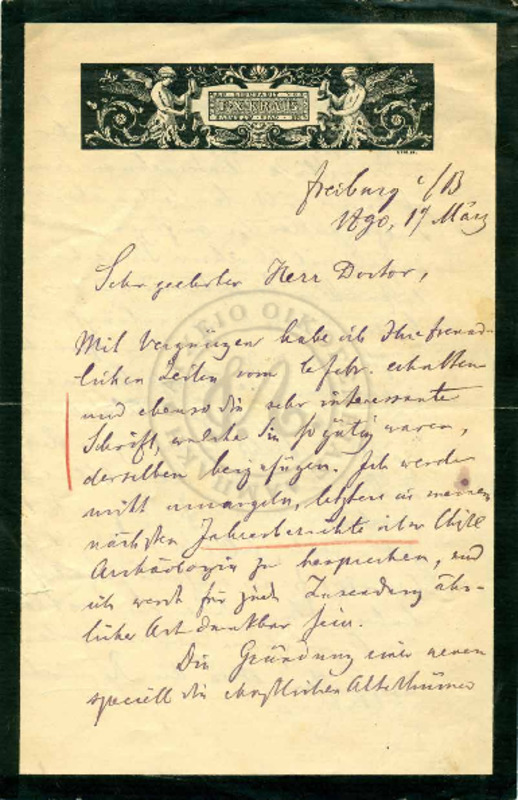 F·X·KRAUS
Freiburg i/B
1890, 17 März
Sehr geehrter Herr Doctor,
Mit Vergnügen habe ich Ihre freund-
lichen Zeilen vom 6 Febr. erhalten
und ebenso die sehr interessante
Schrift, welche Sie so gütig waren,
derselben beizufügen. Ich werde
nicht ermangeln, letztere in meinem
nächsten Jahresberichte über Christl
Archäologie zu besprechen, und
ich werde für jede Zusendung ähn-
licher Art dankbar sein.
Die Gründung einer neuen
speciell die christlichen Alterthümer